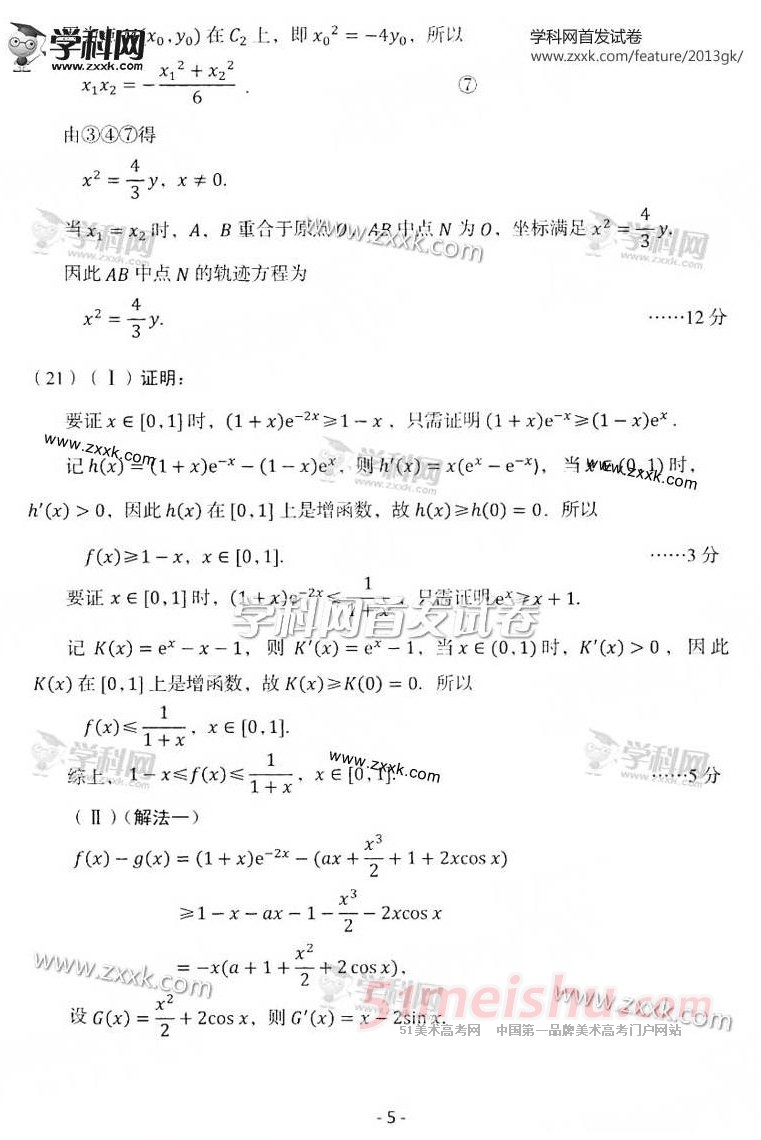 学科网
www.zxxk.com
学科网首发试卷
www.zxxk.com/feature/2013gk/
(x₀, y₀) 在 C₂ 上，即 x₀² = −4y₀，所以
x₁x₂ = −(x₁² + x₂²)/6 . ⑦
由③④⑦得
x² = 4/3 y, x ≠ 0.
当 x₁ = x₂ 时，A，B 重合于原点 O，AB 中点 N 为 O，坐标满足 x² = 4/3 y.
因此 AB 中点 N 的轨迹方程为
x² = 4/3 y. ……12 分
（21）（Ⅰ）证明：
要证 x ∈ [0,1] 时，(1 + x)e⁻²ˣ ⩾ 1 − x ，只需证明 (1 + x)e⁻ˣ ⩾ (1 − x)eˣ .
记 h(x) = (1 + x)e⁻ˣ − (1 − x)eˣ，则 h′(x) = x(eˣ − e⁻ˣ)，当 x ∈ (0,1) 时，
h′(x) > 0，因此 h(x) 在 [0,1] 上是增函数，故 h(x) ⩾ h(0) = 0．所以
f(x) ⩾ 1 − x, x ∈ [0,1]. ……3 分
要证 x ∈ [0,1] 时，(1 + x)e⁻²ˣ ⩽ 1/(1 + x)，只需证明 eˣ ⩾ x + 1.
记 K(x) = eˣ − x − 1，则 K′(x) = eˣ − 1，当 x ∈ (0,1) 时，K′(x) > 0 ，因此
K(x) 在 [0,1] 上是增函数，故 K(x) ⩾ K(0) = 0. 所以
f(x) ⩽ 1/(1 + x), x ∈ [0,1].
综上，1 − x ⩽ f(x) ⩽ 1/(1 + x)，x ∈ [0,1]. ……5 分
（Ⅱ）（解法一）
f(x) − g(x) = (1 + x)e⁻²ˣ − (ax + x³/2 + 1 + 2xcos x)
⩾ 1 − x − ax − 1 − x³/2 − 2xcos x
= −x(a + 1 + x²/2 + 2 cos x).
设 G(x) = x²/2 + 2cos x，则 G′(x) = x − 2sin x.
51meishu.com
51美术高考网 中国第一品牌美术高考门户网站
- 5 -